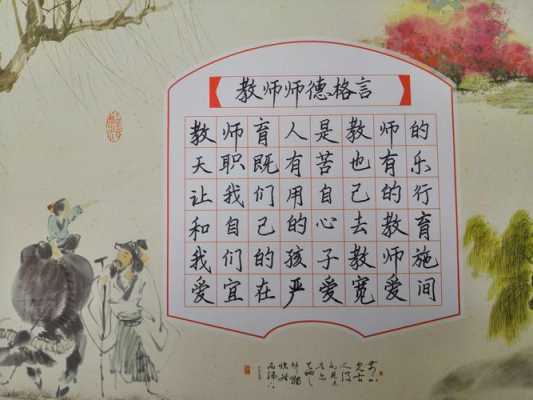 教师师德格言
教师育人是教师的
天职既有苦也有乐
让我们用自己的行
和自己的心去教育
我们的孩子教师施
爱宜在严爱宽爱间